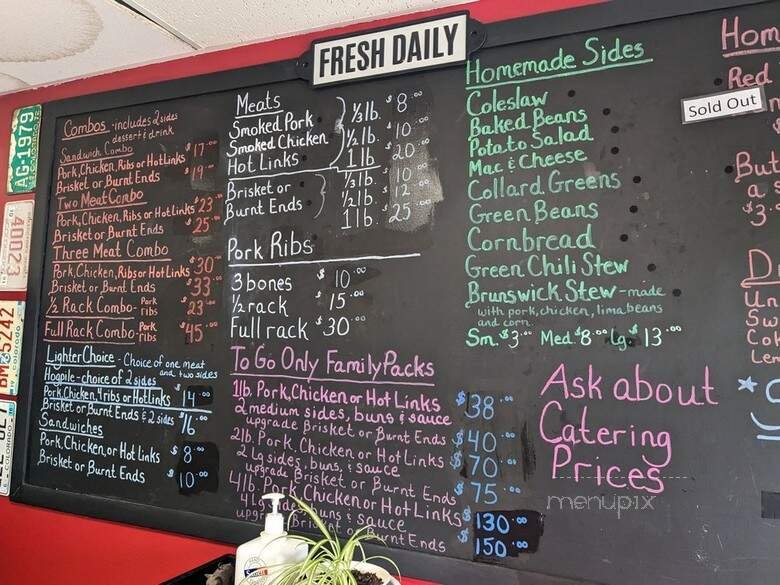 FRESH DAILY
AG·1979
40023
BM·5242
Combos - includes 2 sides
dessert & drink
Sandwich Combo
Pork, Chicken, Ribs or Hot Links $17.00
Brisket or Burnt Ends $19
Two Meat Combo
Pork, Chicken, Ribs or Hot Links $23.00
Brisket or Burnt Ends $25.00
Three Meat Combo
Pork, Chicken, Ribs or Hot Links $30.00
Brisket or Burnt Ends $33.00
1/2 Rack Combo - Pork ribs $23.00
Full Rack Combo - Pork ribs $45.00
Lighter Choice - Choice of one meat
and two sides
Hogpile - choice of 2 sides
Pork, Chicken, 4 ribs or Hot Links $14.00
Brisket or Burnt Ends & 2 sides $16.00
Sandwiches
Pork, Chicken or Hot Links $8.00
Brisket or Burnt Ends $10.00
Meats
Smoked Pork 1/3 lb. $8.00
Smoked Chicken 1/2 lb. $10.00
Hot Links 1 lb $20.00
Brisket or 1/3 lb. $10.00
Burnt Ends 1/2 lb. $12.00
1 lb. $25.00
Pork Ribs
3 bones $10.00
1/2 rack $15.00
Full rack $30.00
To Go Only Family Packs
1 lb. Pork, Chicken or Hot Links $38.00
2 medium sides, buns & sauce
upgrade Brisket or Burnt Ends $40.00
2 lb. Pork, Chicken or Hot Links $70.00
2 Lg sides, buns, & sauce
upgrade Brisket or Burnt Ends $75.00
4 lb. Pork, Chicken or Hot Links $130.00
4 Lg sides, buns & sauce
Brisket or Burnt Ends $150.00
Homemade Sides
Coleslaw
Baked Beans
Potato Salad
Mac & Cheese
Collard Greens
Green Beans
Cornbread
Green Chili Stew
Brunswick Stew - made
with pork, chicken, lima beans
and corn
Sm $3.00 Med $8.00 Lg $13.00
Ask about
Catering
Prices
menupix
Hom
Red
Sold Out
But
a
$3.
D
Un
Sw
Cok
Lem